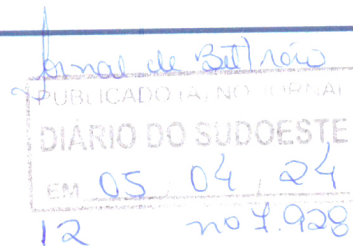 Jornal de Beltrão
PUBLICADO (A) NO JORNAL
DIÁRIO DO SUDOESTE
EM 05 / 04 / 24
12 nº 7.928